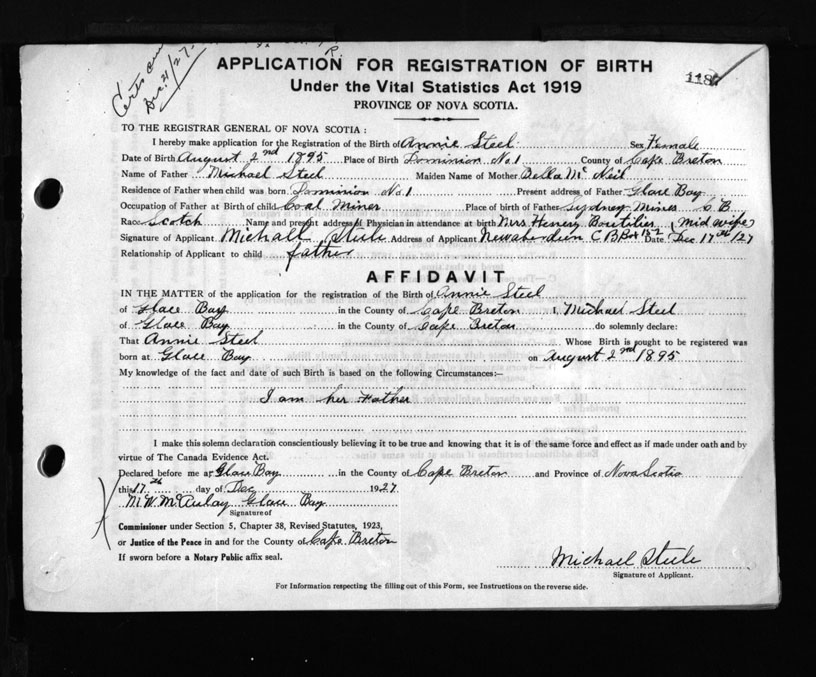 R.
Dec. 21/27.
APPLICATION FOR REGISTRATION OF BIRTH
118
Under the Vital Statistics Act 1919
PROVINCE OF NOVA SCOTIA.
TO THE REGISTRAR GENERAL OF NOVA SCOTIA:
I hereby make application for the Registration of the Birth of Annie Steel Sex Female
Date of Birth August 2nd 1895 Place of Birth Dominion No.1 County of Cape Breton
Name of Father Michael Steel Maiden Name of Mother Bella McNeil
Residence of Father when child was born Dominion No.1 Present address of Father Glace Bay
Occupation of Father at Birth of child Coal Miner Place of birth of Father Sydney Mines C B
Race Scotch Name and present address of Physician in attendance at birth Mrs Henery Boutilier (Mid wife)
Signature of Applicant Michall Steele Address of Applicant Newaberdeen C B Box 152 Date Dec 17th /27
Relationship of Applicant to child father
AFFIDAVIT
IN THE MATTER of the application for the registration of the Birth of Annie Steel
of Glace Bay in the County of Cape Breton I, Michael Steel
of Glace Bay in the County of Cape Breton do solemnly declare:
That Annie Steel Whose Birth is sought to be registered was
born at Glace Bay on August 2nd 1895
My knowledge of the fact and date of such Birth is based on the following Circumstances:—
I am her Father
I make this solemn declaration conscientiously believing it to be true and knowing that it is of the same force and effect as if made under oath and by
virtue of The Canada Evidence Act.
Declared before me at Glace Bay in the County of Cape Breton and Province of Nova Scotia
this 17th day of Dec 1927
M. W. McAulay Glace Bay
Signature of
Commissioner under Section 5, Chapter 38, Revised Statutes, 1923,
or Justice of the Peace in and for the County of Cape Breton
If sworn before a Notary Public affix seal.
Michael Steele
Signature of Applicant.
For Information respecting the filling out of this Form, see Instructions on the reverse side.